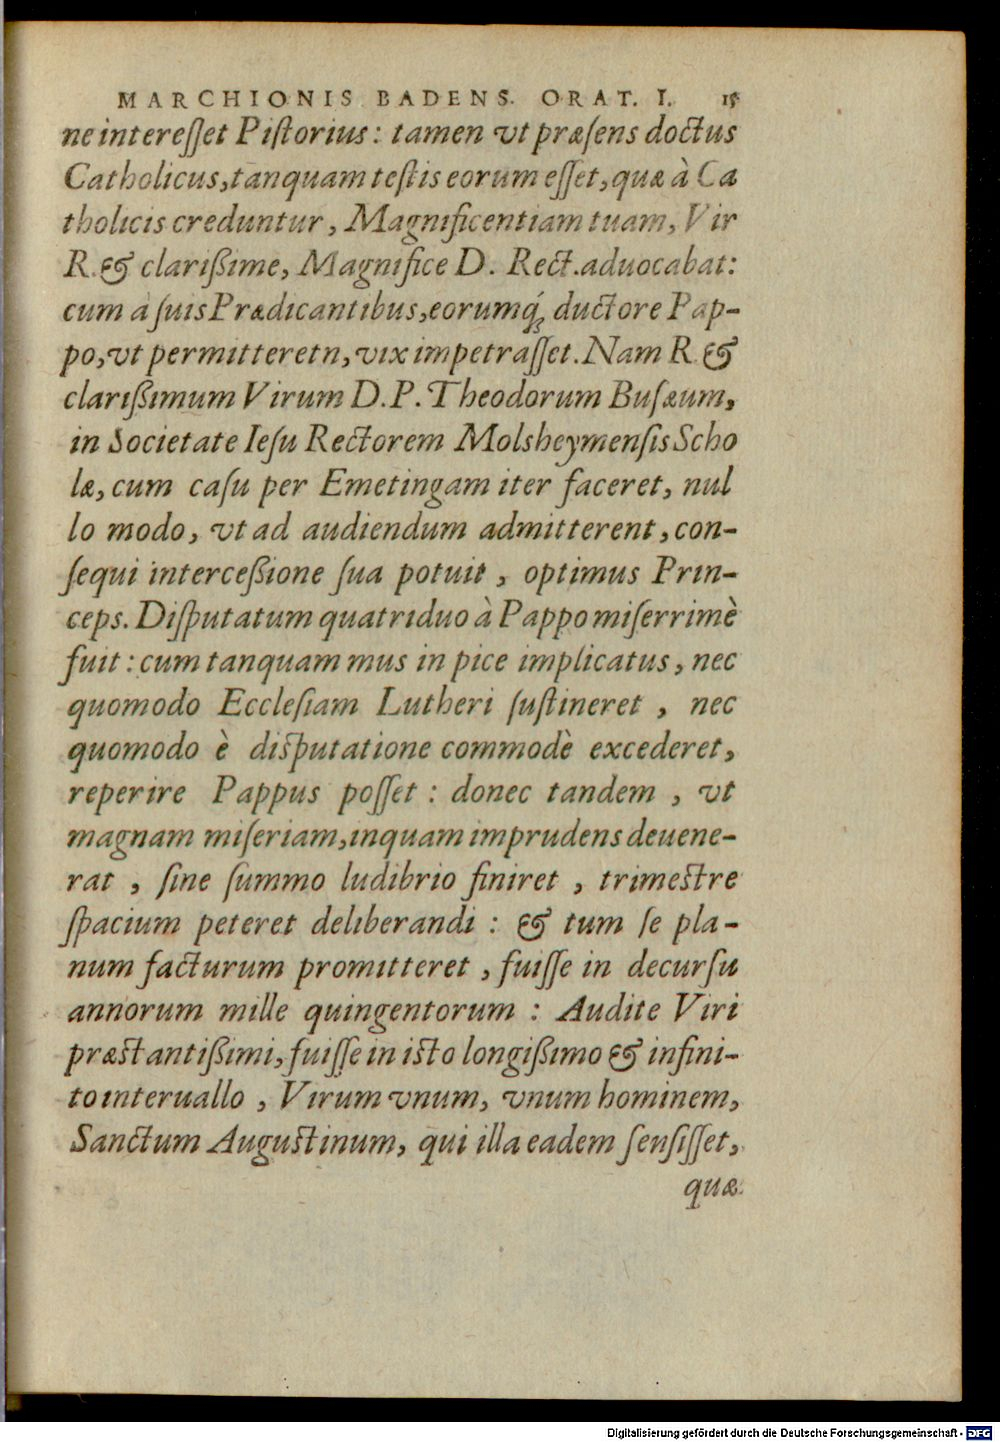 MARCHIONIS BADENS. ORAT. I. 15
ne intereſſet Piſtorius: tamen vt præſens doctus
Catholicus, tanquam teſtis eorum eſſet, quæ à Ca
tholicis creduntur, Magnificentiam tuam, Vir
R. & clarißime, Magnifice D. Rect. aduocabat:
cum à ſuis Prædicantibus, eorumq́ꝫ ductore Pap-
po, vt permitteretn, vix impetraſſet. Nam R. &
clarißimum Virum D. P. Theodorum Buſæum,
in Societate Ieſu Rectorem Molsheymenſis Scho
læ, cum caſu per Emetingam iter faceret, nul
lo modo, vt ad audiendum admitterent, con-
ſequi interceßione ſua potuit, optimus Prin-
ceps. Diſputatum quatriduo à Pappo miſerrimè
fuit: cum tanquam mus in pice implicatus, nec
quomodo Eccleſiam Lutheri ſuſtineret, nec
quomodo è diſputatione commodè excederet,
reperire Pappus poſſet: donec tandem, vt
magnam miſeriam, inquam imprudens deuene-
rat, ſine ſummo ludibrio finiret, trimeſtre
ſpacium peteret deliberandi: & tum ſe pla-
num facturum promitteret, fuiſſe in decurſu
annorum mille quingentorum: Audite Viri
præſtantißimi, fuiſſe in iſto longißimo & infini-
to interuallo, Virum vnum, vnum hominem,
Sanctum Auguſtinum, qui illa eadem ſenſiſſet,
quæ
Digitalisierung gefördert durch die Deutsche Forschungsgemeinschaft - DFG